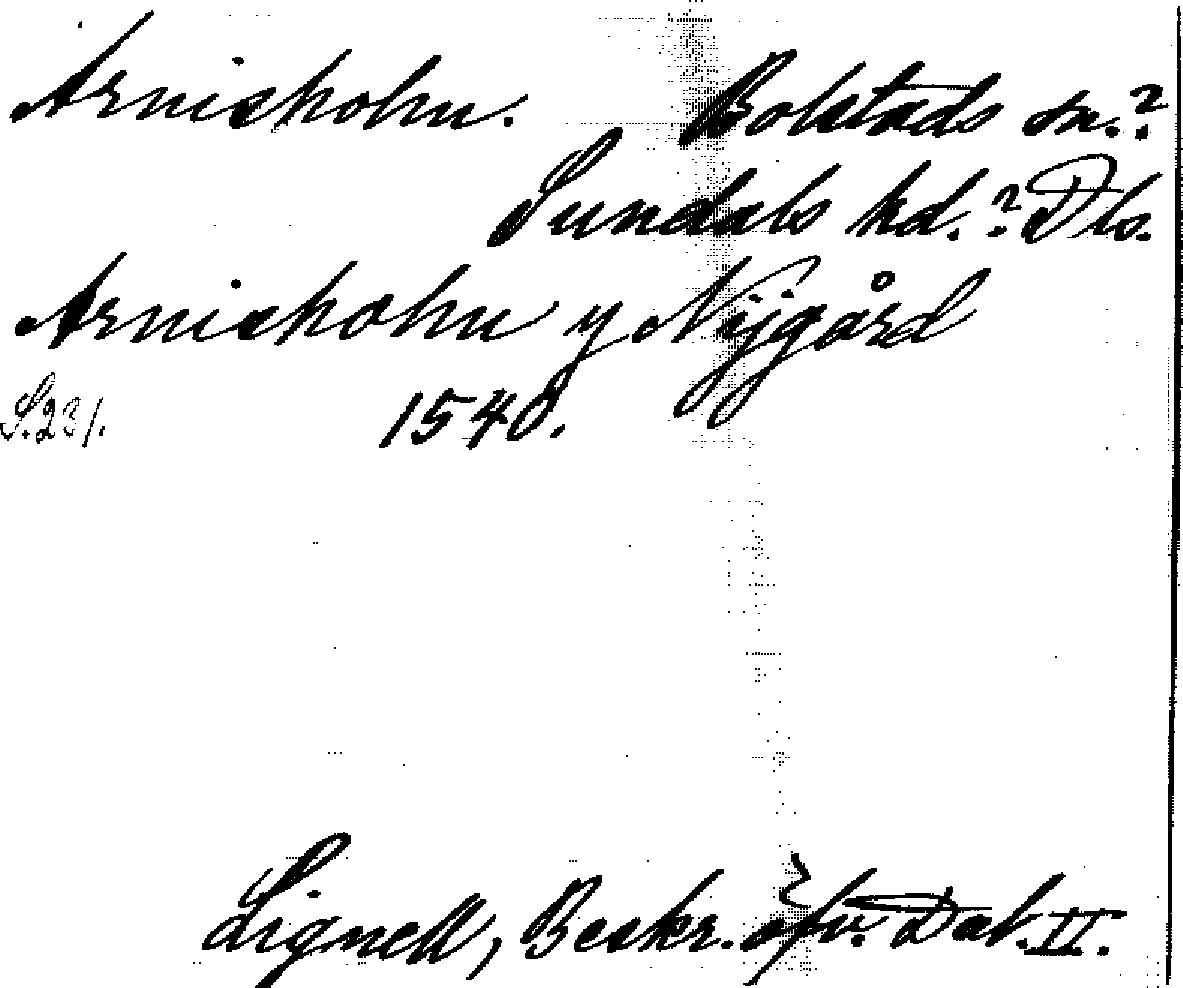 Arnisholm. Bolstads sn.?
Sundals hd.? Dls.
Arnisholm y Nÿgård
S. 231. 1540.
Lignell, Beskr. öfv. Dal. II.